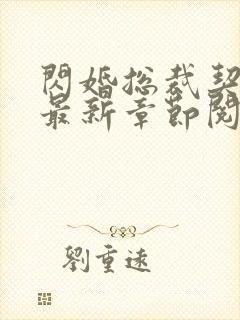 閃婚總裁契
最新章節閱
劉重遠